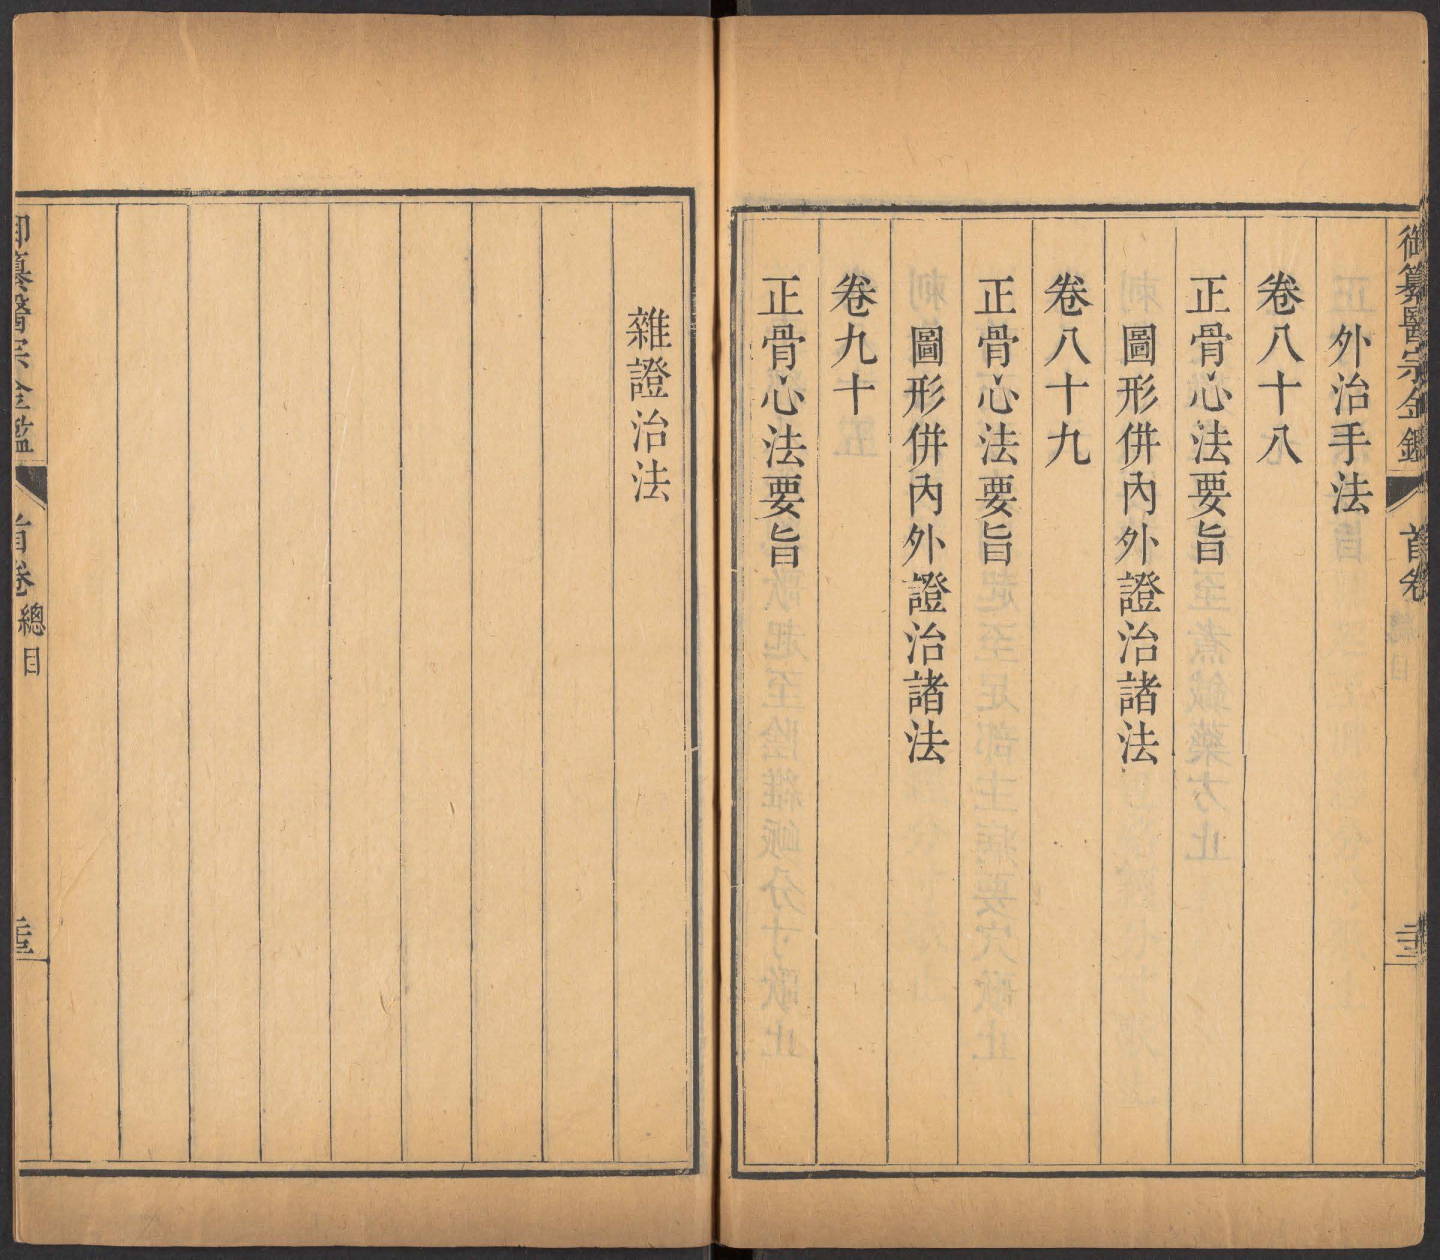 御纂醫宗金鑑
首卷
外治手法
卷八十八
正骨心法要旨
圖形併內外證治諸法
卷八十九
正骨心法要旨
圖形併內外證治諸法
卷九十
正骨心法要旨
雜證治法
御纂醫宗金鑑
首卷 總目